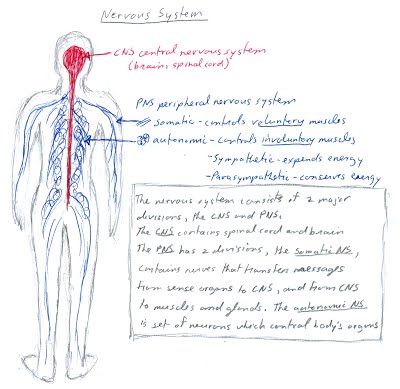 Nervous System
CNS central nervous system
(brain, spinal cord)
PNS peripheral nervous system
Somatic - controls voluntery muscles
autonomic - controls involuntery muscles
- Sympathetic - expends energy
- Parasympathetic - conserves energy
The nervous system consists of 2 major
divisions, the CNS and PNS.
The CNS contains spinal cord and brain
The PNS has 2 divisions, the somatic NS,
contains nerves that transfer messages
from sense organs to CNS, and from CNS
to muscles and glands. The autonomic NS
is set of neurons which control body's organs